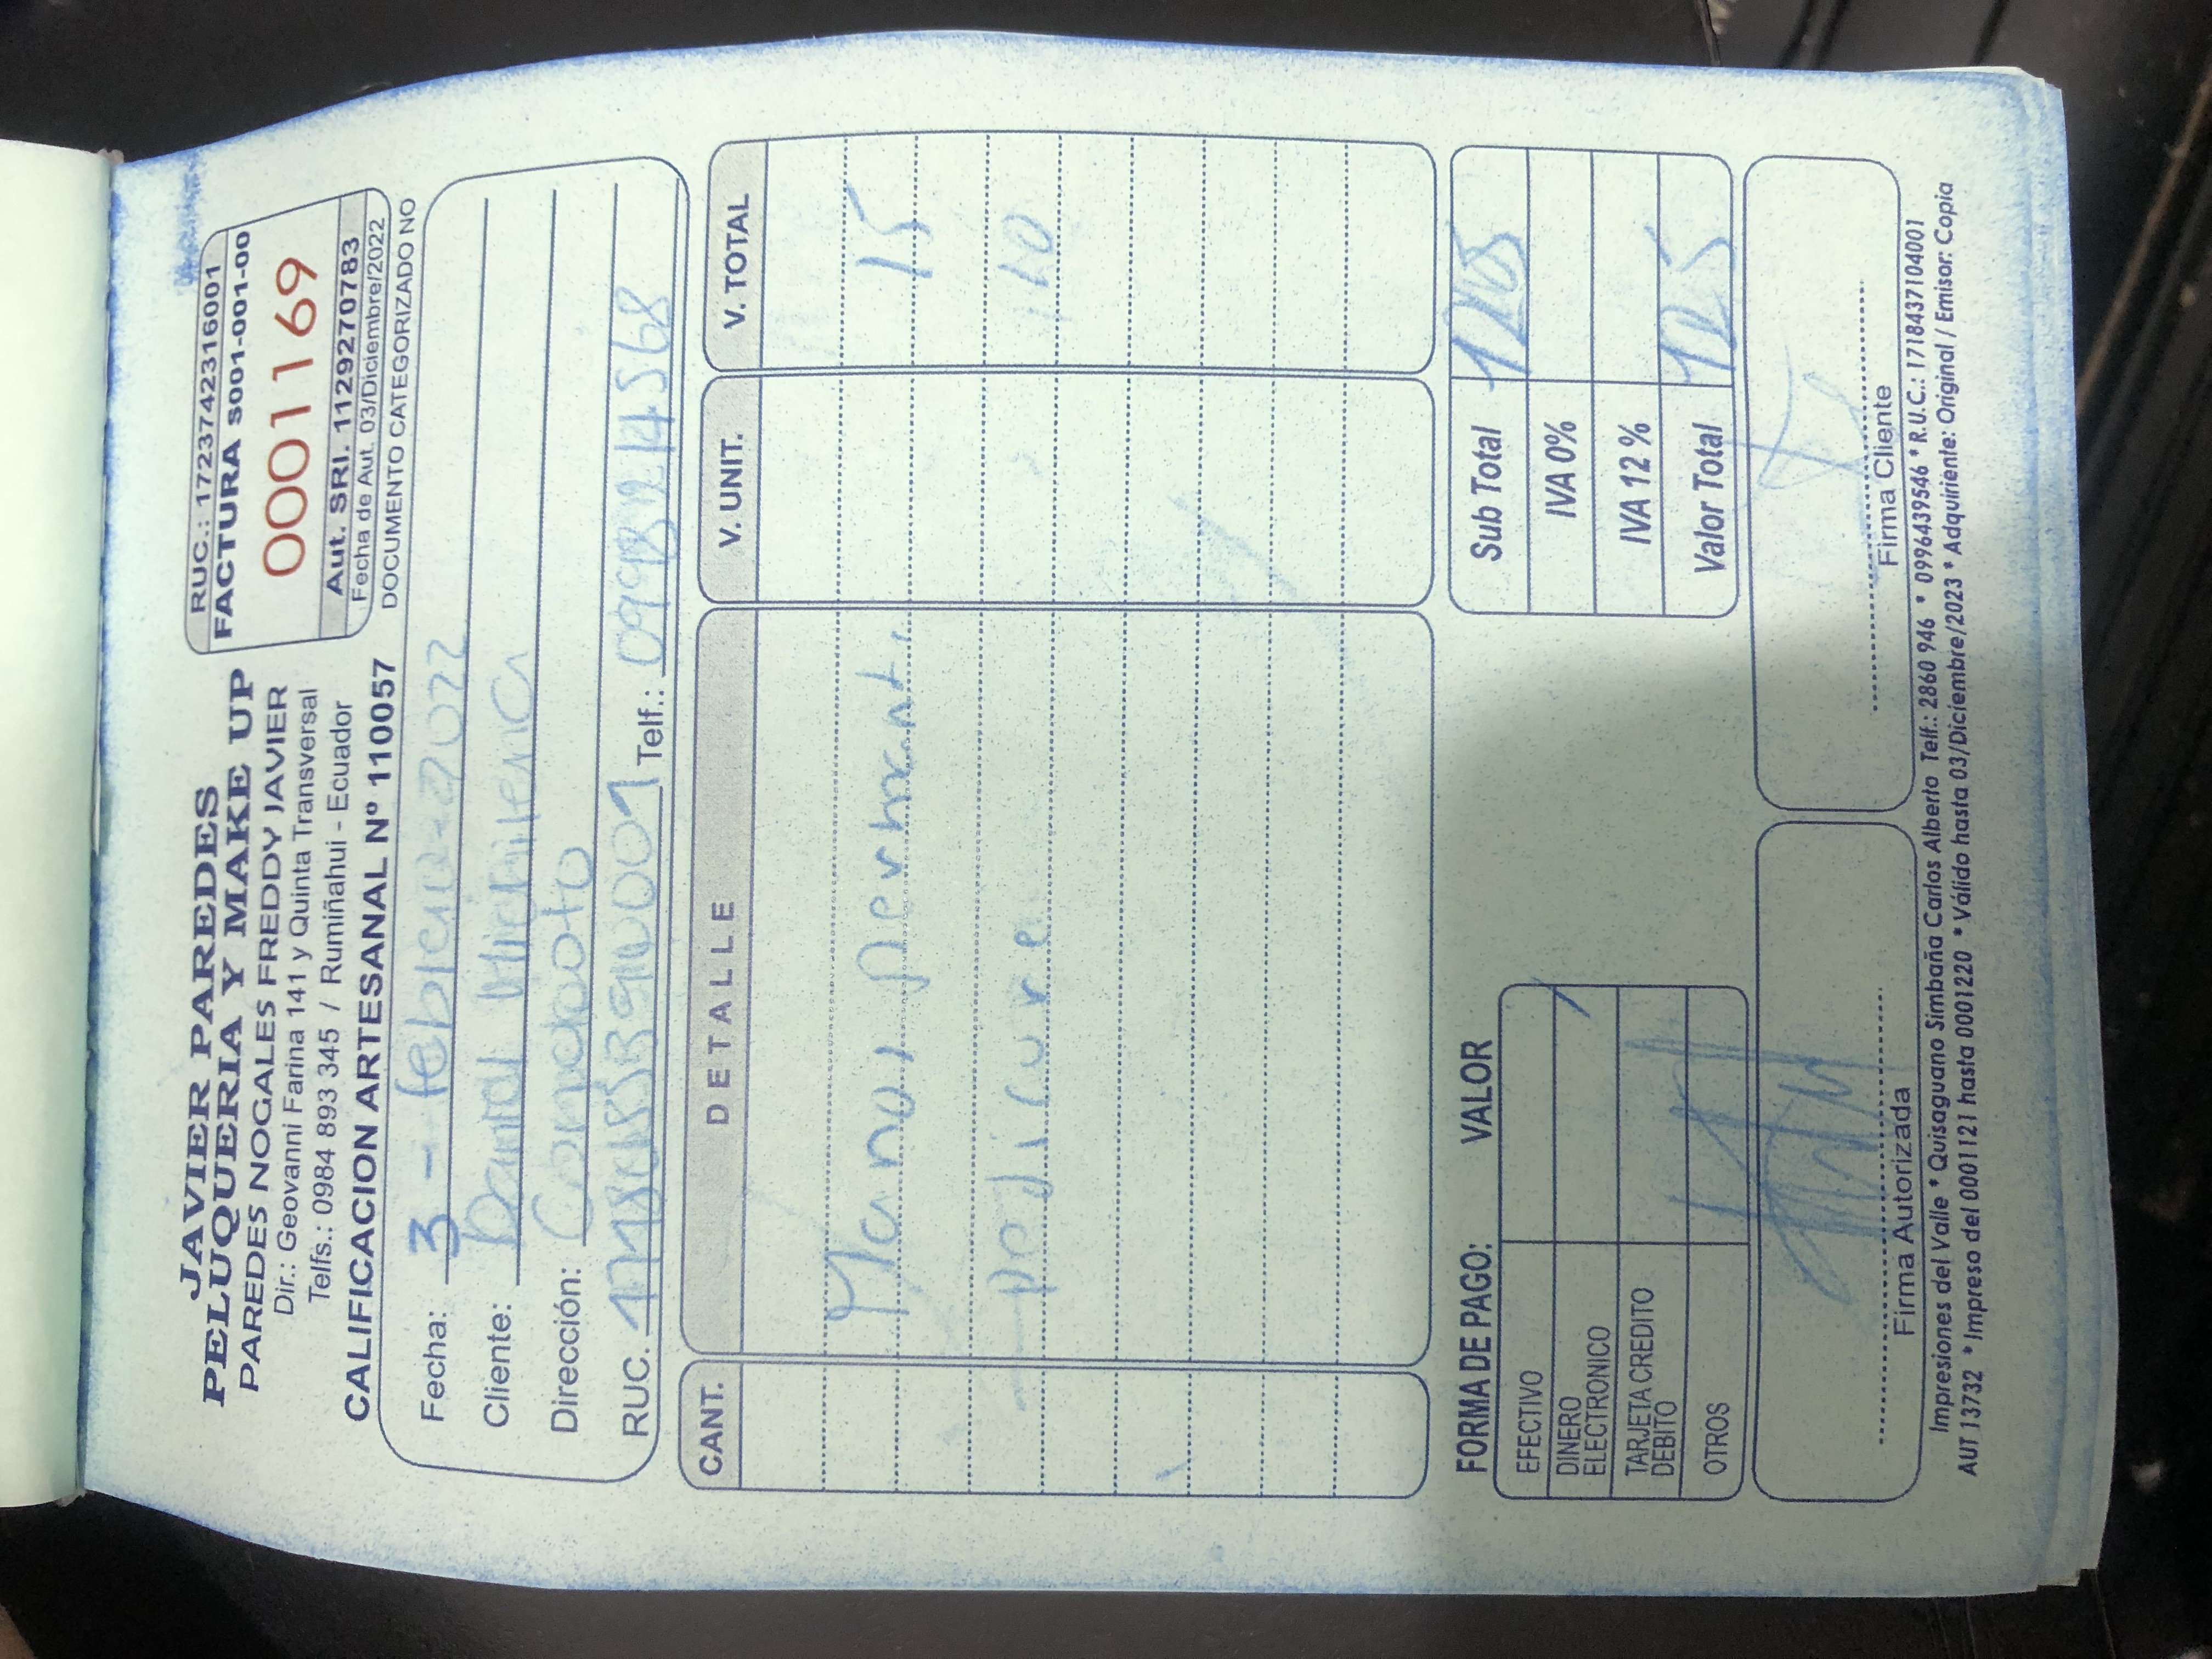 JAVIER PAREDES
PELUQUERIA Y MAKE UP
PAREDES NOGALES FREDDY JAVIER
Dir.: Geovanni Farina 141 y Quinta Transversal
Telfs.: 0984 893 345 / Rumiñahui - Ecuador
CALIFICACION ARTESANAL Nº 110057
RUC.: 1723742316001
FACTURA S001-001-00
0001169
Aut. SRI. 1129270783
Fecha de Aut. 03/Diciembre/2022
DOCUMENTO CATEGORIZADO NO
Fecha: 3 - febrero - 2022
Cliente: Daniel
Dirección:
RUC. Telf.:
CANT. DETALLE V. UNIT. V. TOTAL
Manos permant. 15
- pedicure 10
FORMA DE PAGO: VALOR
EFECTIVO
DINERO ELECTRONICO
TARJETA CREDITO DEBITO
OTROS
Sub Total
IVA 0%
IVA 12 %
Valor Total 125
Firma Autorizada
Firma Cliente
Impresiones del Valle * Quisaguano Simbaña Carlos Alberto Telf.: 2860 946 * 0996439546 * R.U.C.: 1718437104001
AUT 13732 * Impreso del 0001121 hasta 0001220 * Válido hasta 03/Diciembre/2023 * Adquiriente: Original / Emisor: Copia